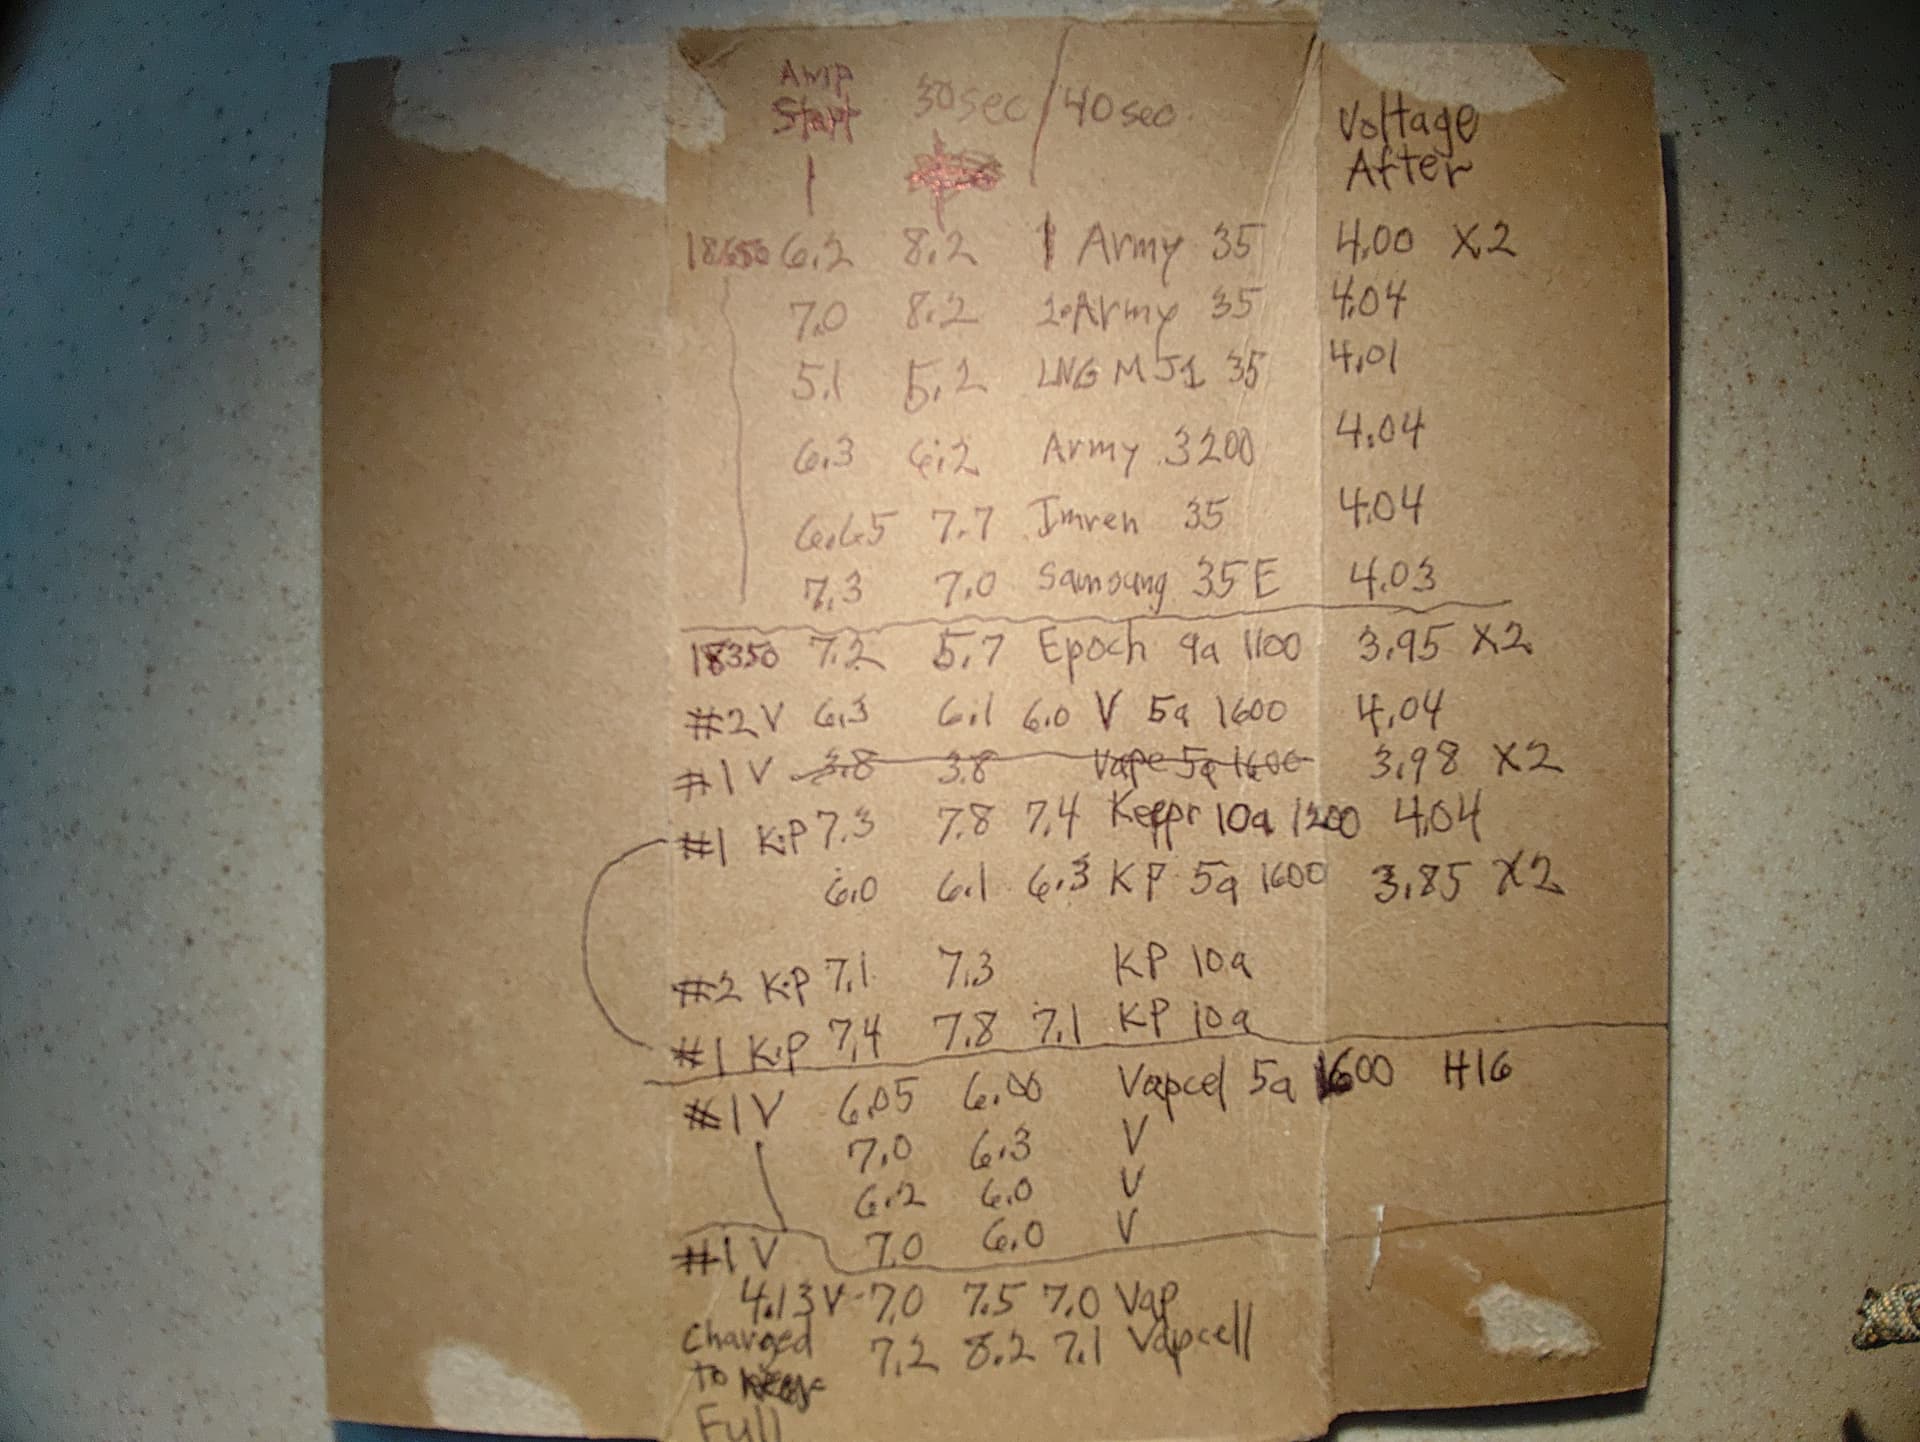 Amp Start 30sec / 40sec Voltage After
18650 6.2 8.2 1 Army 35 4.00 X2
7.0 8.2 2.Army 35 4.04
5.1 5.2 LNG MJ1 35 4.01
6.3 6.2 Army 3200 4.04
6.65 7.7 Imren 35 4.04
7.3 7.0 Samsung 35E 4.03
18350 7.2 5.7 Epoch 9a 1100 3.95 X2
#2 V 6.3 6.1 6.0 V 5a 1600 4.04
#1 V 3.8 3.8 Vape 5a 1600 3.98 X2
#1 K.P 7.3 7.8 7.4 Keppr 10a 1200 4.04
6.0 6.1 6.3 KP 5a 1600 3.85 X2
#2 K.P 7.1 7.3 KP 10a
#1 K.P 7.4 7.8 7.1 KP 10a
#1 V 6.05 6.00 Vapcel 5a 1600 H16
7.0 6.3 V
6.2 6.0 V
#1 V 7.0 6.0 V
4.13V-7.0 7.5 7.0 Vap
Charged 7.2 8.2 7.1 Vapcell
to
Full